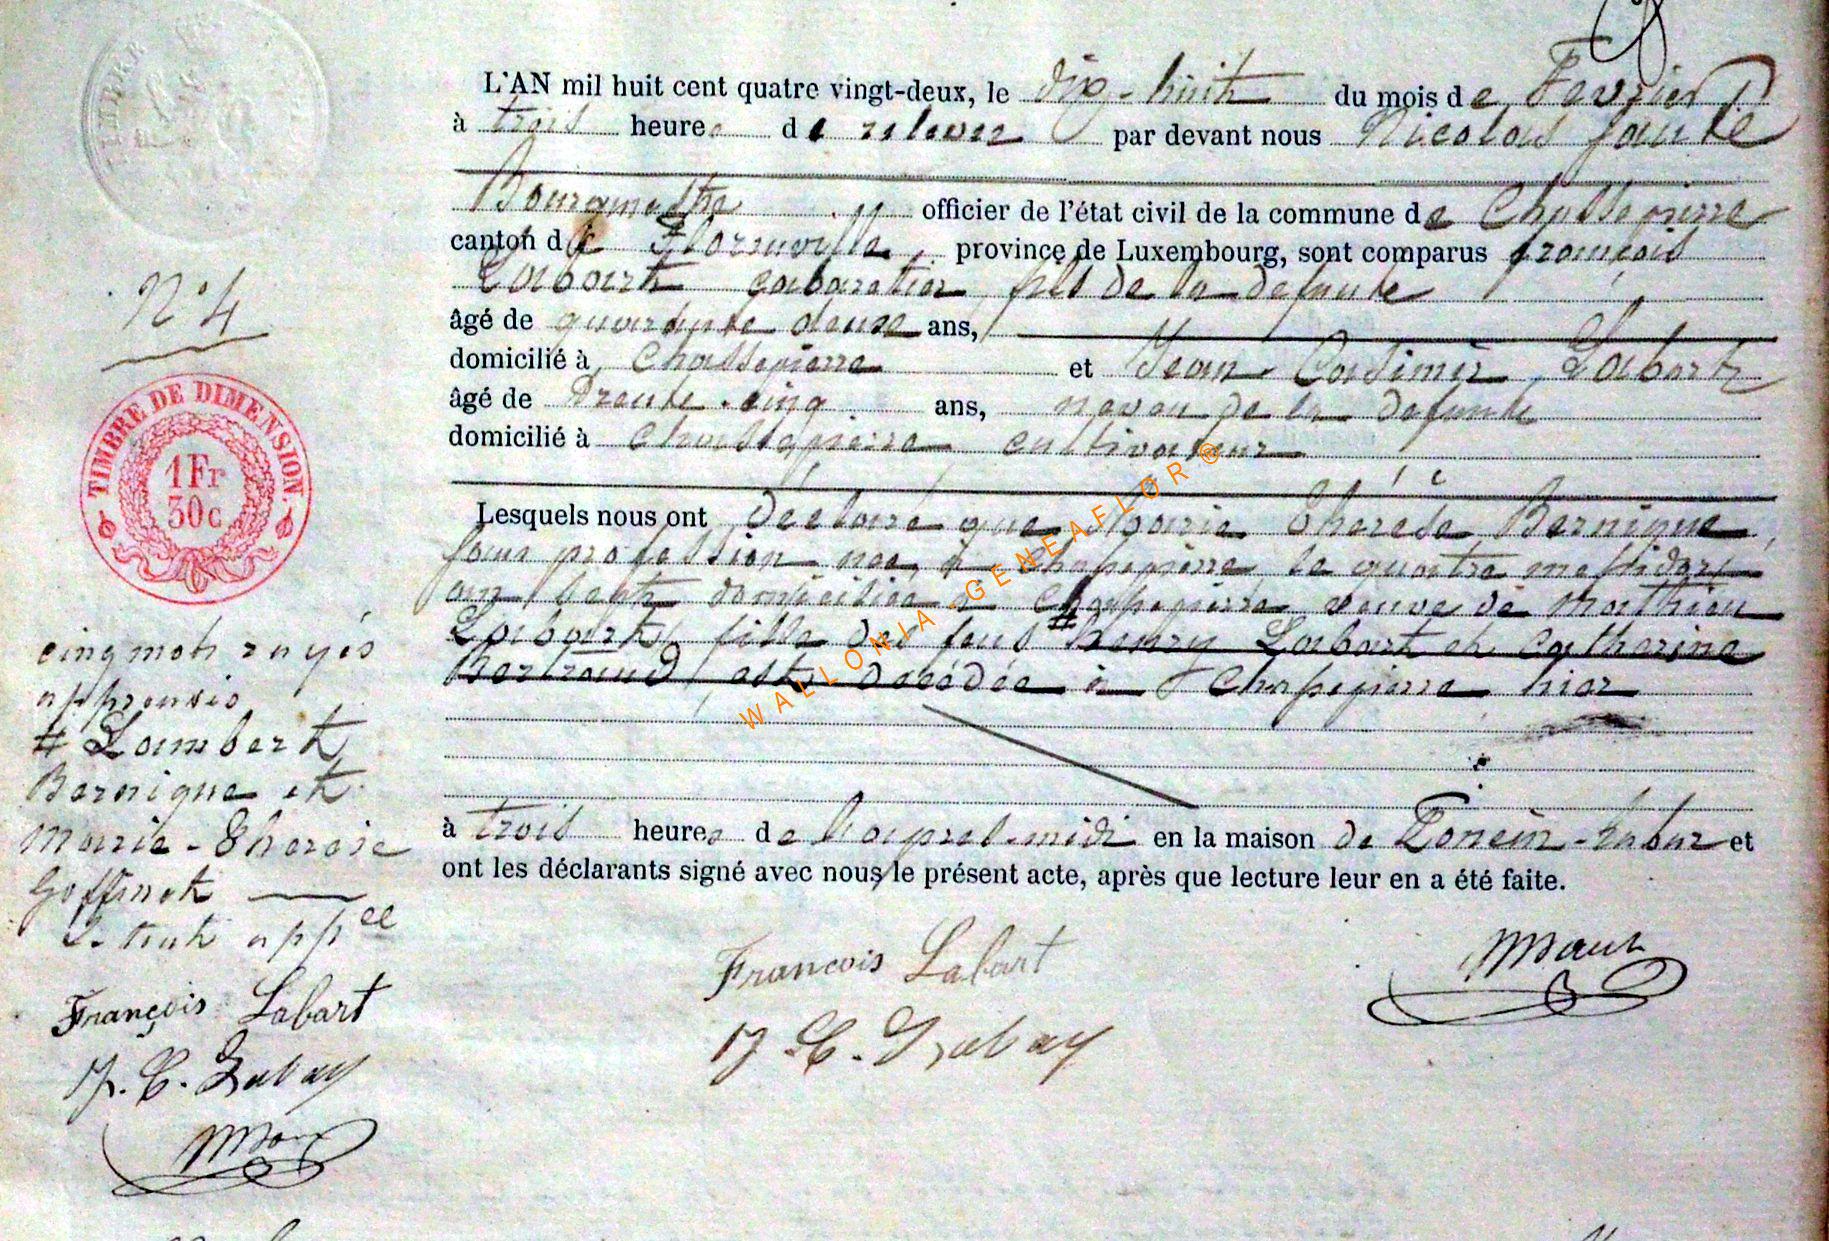 TIMBRE
L'AN mil huit cent quatre vingt-deux, le dix-huit du mois de Fevrier
à trois heures de relevée par devant nous Nicolas
Bourgmestre officier de l'état civil de la commune de Chassepierre
canton de Florenville, province de Luxembourg, sont comparus françois
Labart cabaretier, fils de la defunte
âgé de quarante deux ans,
domicilié à Chassepierre et Jean Casimir Labart
âgé de Trente-cinq ans, neveu de la defunte
domicilié à Chassepierre cultivateur
Lesquels nous ont déclaré que Marie Thérèse Bernique,
sans profession née à Chassepierre le quatre messidor
an sept domiciliée à Chassepierre veuve de Mathieu
Labart, fille des feus # henry Labart et catherine
Bertrand, est décédée à Chassepierre hier
à trois heures de l'après-midi en la maison de et
ont les déclarants signé avec nous le présent acte, après que lecture leur en a été faite.
François Labart
J. C. Labar
N°. 4
TIMBRE DE DIMENSION.
1 Fr
30 c
cinq mots rayés
approuvés
# Lambert
Bernique et
Marie-Therese
Goffinet
François Labart
J. C. Labar
WALLONIA-GENEAFLOR®